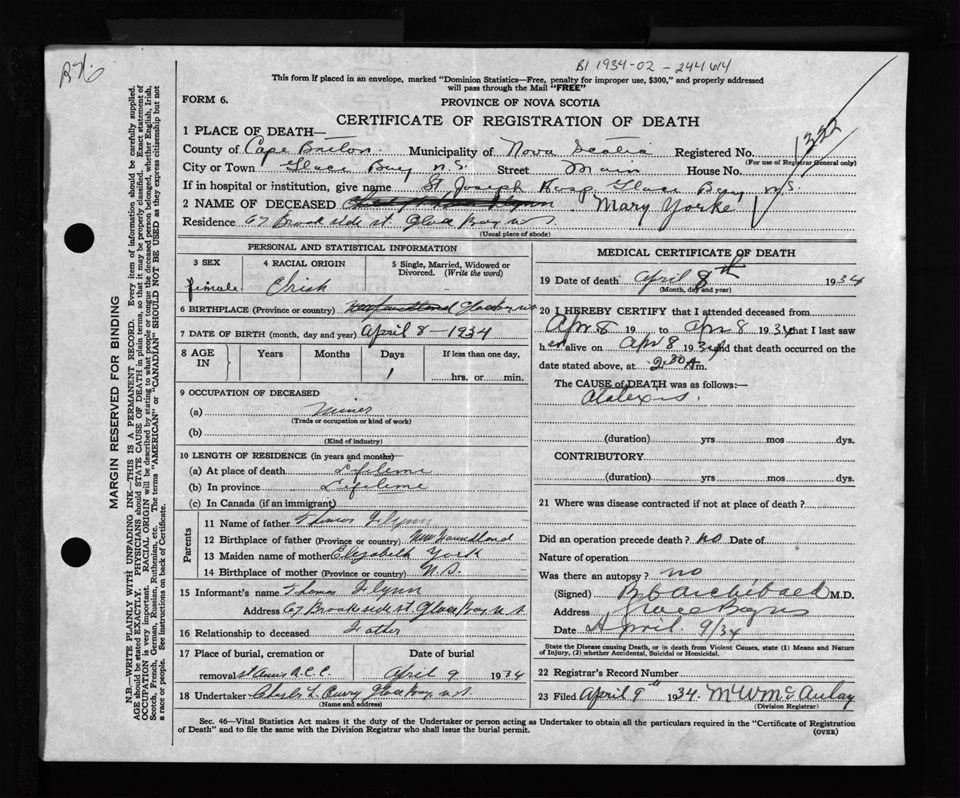 B1 1934-02-244614
This form if placed in an envelope, marked "Dominion Statistics—Free, penalty for improper use, $300," and properly addressed
will pass through the Mail "FREE"
FORM 6.
PROVINCE OF NOVA SCOTIA
CERTIFICATE OF REGISTRATION OF DEATH
1 PLACE OF DEATH—
County of Cape Breton. Municipality of Nova Scotia Registered No. 322
(For use of Registrar General only)
City or Town Glace Bay N.S. Street Main House No.
If in hospital or institution, give name St Joseph Hosp Glace Bay N.S.
2 NAME OF DECEASED Mary Yorke
Residence 67 Brookside st. Glace Bay N.S
(Usual place of abode)
PERSONAL AND STATISTICAL INFORMATION
3 SEX 4 RACIAL ORIGIN 5 Single, Married, Widowed or Divorced. (Write the word)
female Irish -
6 BIRTHPLACE (Province or country) Newfoundland Glace Bay N.S
7 DATE OF BIRTH (month, day and year) April 8-1934
8 AGE IN Years Months Days If less than one day,
1 hrs. or min.
9 OCCUPATION OF DECEASED
(a) Miner
(Trade or occupation or kind of work)
(b)
(Kind of industry)
10 LENGTH OF RESIDENCE (in years and months)
(a) At place of death Lifetime
(b) In province Lifetime
(c) In Canada (if an immigrant)
Parents
11 Name of father Thomas Flynn
12 Birthplace of father (Province or country) Newfoundland
13 Maiden name of mother Elizabeth York
14 Birthplace of mother (Province or country) N.S.
15 Informant's name Thomas Flynn
Address 67 Brookside st Glace Bay N.S
16 Relationship to deceased Father
17 Place of burial, cremation or removal Date of burial
St Anns R.C.C. April 9 1934
18 Undertaker Curry Glace Bay N.S.
(Name and address)
MEDICAL CERTIFICATE OF DEATH
19 Date of death April 8th 1934
(Month, day and year)
20 I HEREBY CERTIFY that I attended deceased from
Apr 8 19 to Apr 8 1934 that I last saw
her alive on Apr 8 1934 and that death occurred on the
date stated above, at 2:30 A m.
The CAUSE of DEATH was as follows:—
(duration) yrs mos dys.
CONTRIBUTORY
(duration) yrs mos dys.
21 Where was disease contracted if not at place of death?
Did an operation precede death? no Date of
Nature of operation
Was there an autopsy? no
(Signed) Archibald M.D.
Address Glace Bay NS
Date April 9/34
State the Disease causing Death, or in death from Violent Causes, state (1) Means and Nature
of Injury, (2) whether Accidental, Suicidal or Homicidal.
22 Registrar's Record Number
23 Filed April 9th 1934. McAulay
(Division Registrar)
Sec. 46—Vital Statistics Act makes it the duty of the Undertaker or person acting as Undertaker to obtain all the particulars required in the "Certificate of Registration
of Death" and to file the same with the Division Registrar who shall issue the burial permit. (OVER)
MARGIN RESERVED FOR BINDING
N.B.—WRITE PLAINLY WITH UNFADING INK—THIS IS A PERMANENT RECORD. Every item of information should be carefully supplied.
AGE should be stated EXACTLY. PHYSICIANS should STATE CAUSE OF DEATH in plain terms, so that it may be properly classified. Exact statement of
OCCUPATION is very important. RACIAL ORIGIN will be described by stating to what people or tongue the deceased person belonged, whether English, Irish,
Scotch, French, German, Russian, Ruthenian, etc. The terms "AMERICAN" or "CANADIAN" SHOULD NOT BE USED as they express citizenship but not
a race or people. See instructions on back of Certificate.